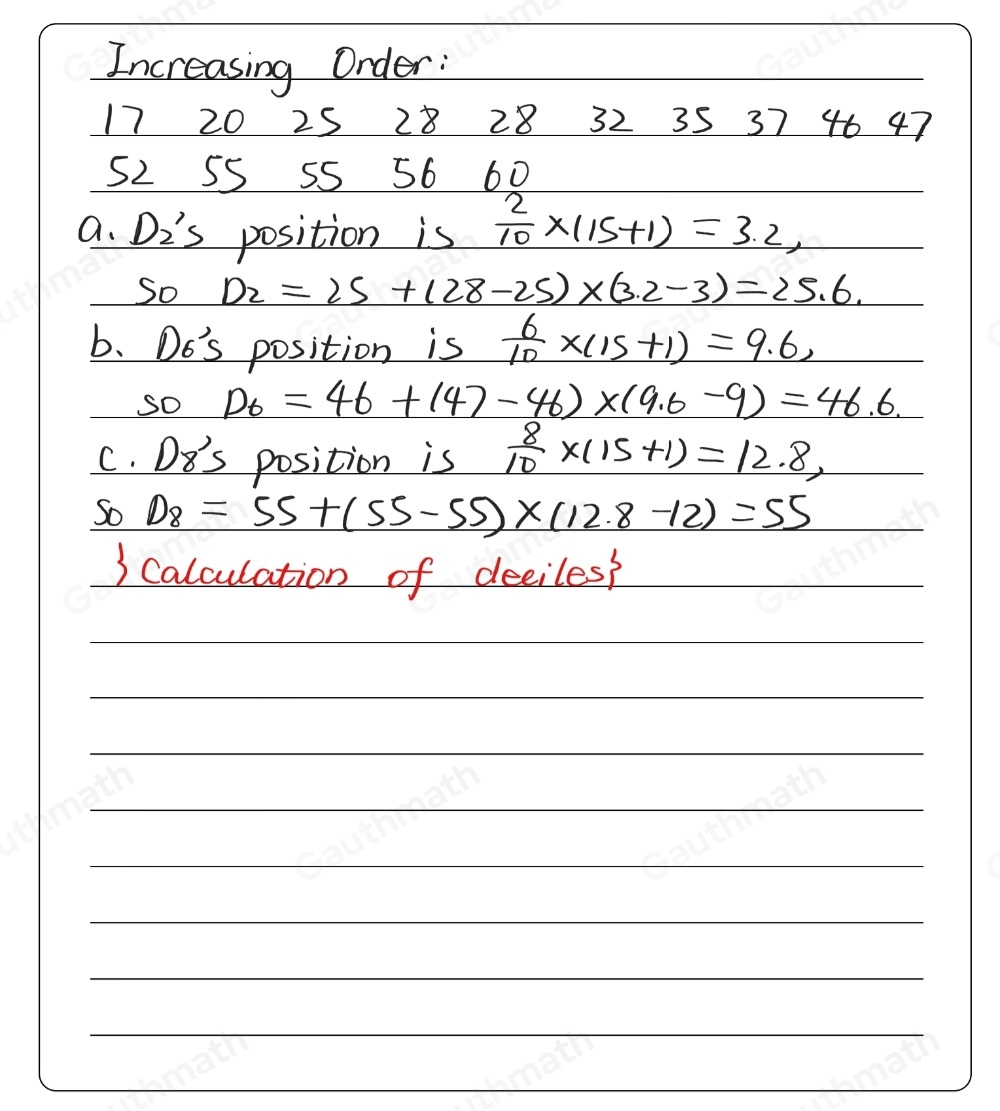 Increasing Order:
17 20 25 28 28 32 35 37 46 47
52 55 55 56 60
a. D₂'s position is 2/10 ×(15+1) = 3.2,
so D₂ = 25 +(28-25)×(3.2-3)=25.6.
b. D6's position is 6/10 ×(15+1) = 9.6,
so D6 = 46 +(47-46)×(9.6-9)=46.6.
c. D8's position is 8/10 ×(15+1)=12.8,
so D8 = 55+(55-55)×(12.8-12)=55
}Calculation of deeiles}
Gauthmath